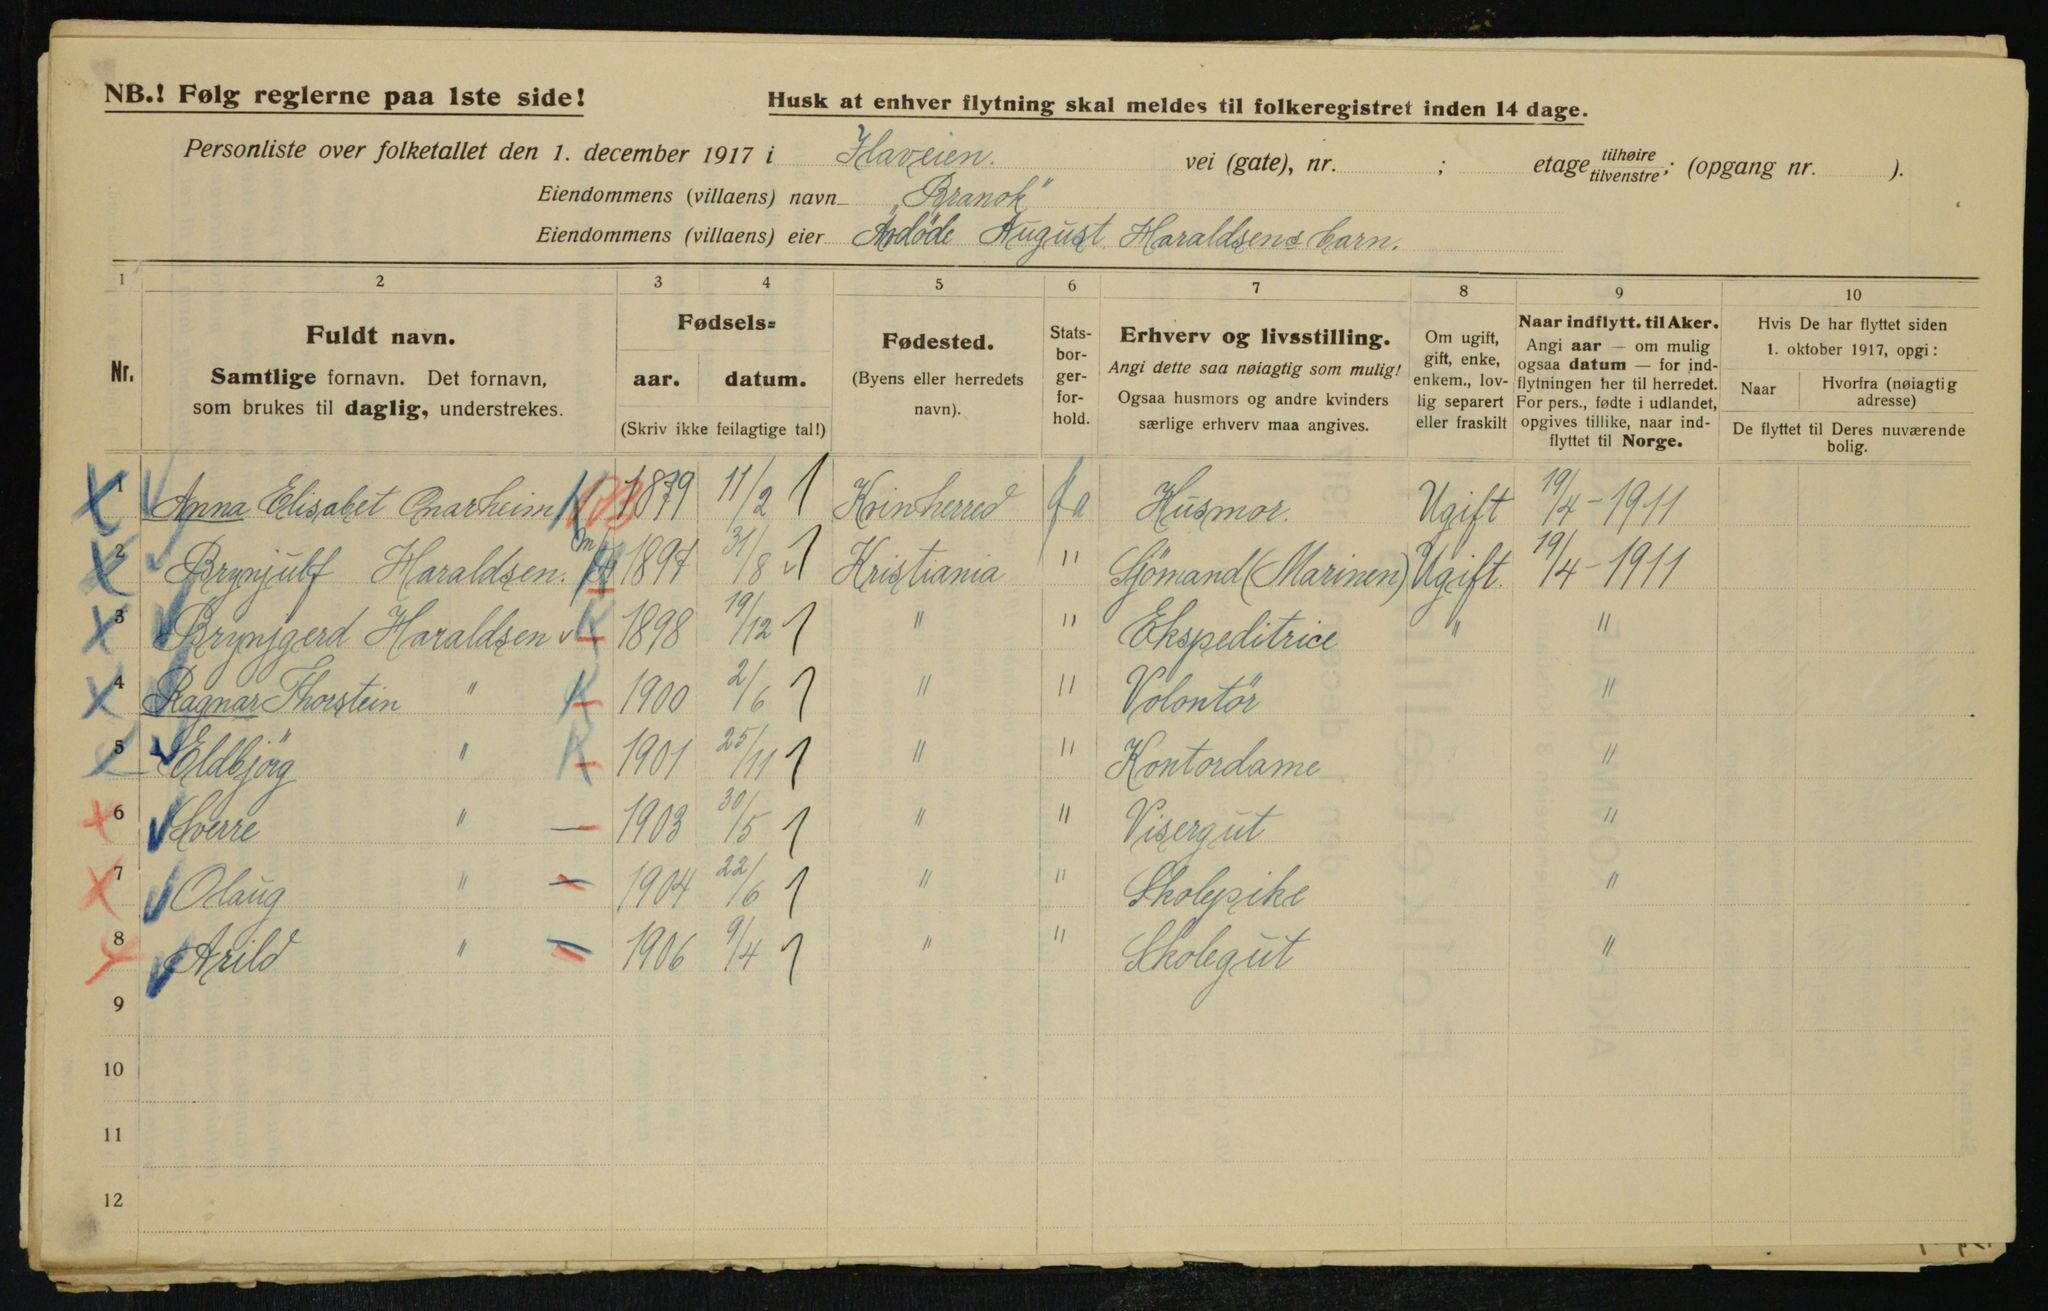 NB.! Følg reglerne paa 1ste side!
Husk at enhver flytning skal meldes til folkeregistret inden 14 dage.
Personliste over folketallet den 1. december 1917 i Haveien. vei (gate), nr. ; etage tilhøire tilvenstre; (opgang nr. ).
Eiendommens (villaens) navn „Branok"
Eiendommens (villaens) eier Avdöde August Haraldsens barn.
1 2 3 4 5 6 7 8 9 10
Nr.
Fuldt navn.
Samtlige fornavn. Det fornavn,
som brukes til daglig, understrekes.
Fødsels=
aar. datum.
(Skriv ikke feilagtige tal!)
Fødested.
(Byens eller herredets
navn).
Stats-
bor-
ger-
for-
hold.
Erhverv og livsstilling.
Angi dette saa nøiagtig som mulig!
Ogsaa husmors og andre kvinders
særlige erhverv maa angives.
Om ugift,
gift, enke,
enkem., lov-
lig separert
eller fraskilt
Naar indflytt. til Aker.
Angi aar — om mulig
ogsaa datum — for ind-
flytningen her til herredet.
For pers., fødte i udlandet,
opgives tillike, naar ind-
flyttet til Norge.
Hvis De har flyttet siden
1. oktober 1917, opgi:
Naar
Hvorfra (nøiagtig
adresse)
De flyttet til Deres nuværende
bolig.
1 Anna Elisabet Onarheim 1879 11/2 Kvinherred Husmor. Ugift 19/4 - 1911
2 Brynjulf Haraldsen. 1897 31/8 Kristiania " Sjömand (Marinen) Ugift. 19/4 - 1911
3 Brynjgerd Haraldsen 1898 19/12 " " Ekspeditrice " "
4 Ragnar Thorstein " 1900 2/6 " " Volontör "
5 Eldbjörg " 1901 25/11 " " Kontordame "
6 Sverre " 1903 30/5 " " Visergut "
7 Olaug " 1904 22/6 " " Skolepike "
8 Arild " 1906 9/4 " " Skolegut "
9
10
11
12